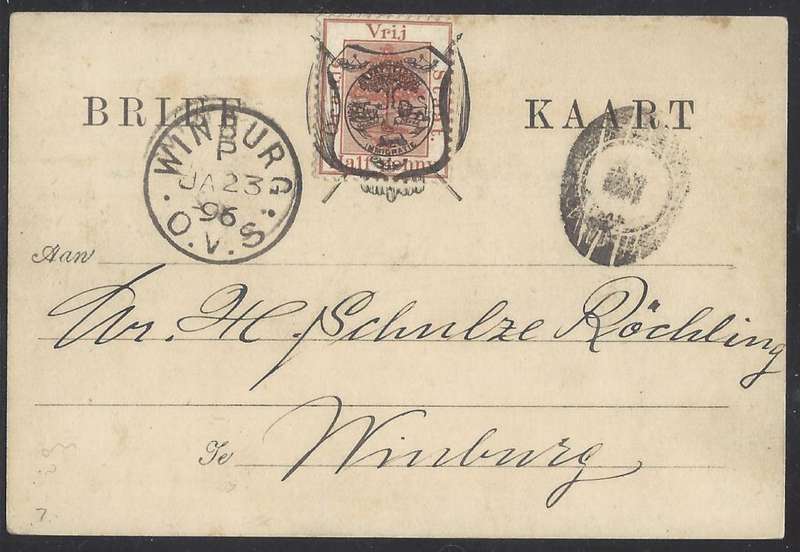 Vrij
Half Penny
IMMIGRATIE
BRIEF KAART
WINBURG
B
P
JA 23
96
O.V.S.
Aan
Mr. H. Schulze Röchling
Te Winburg
7.